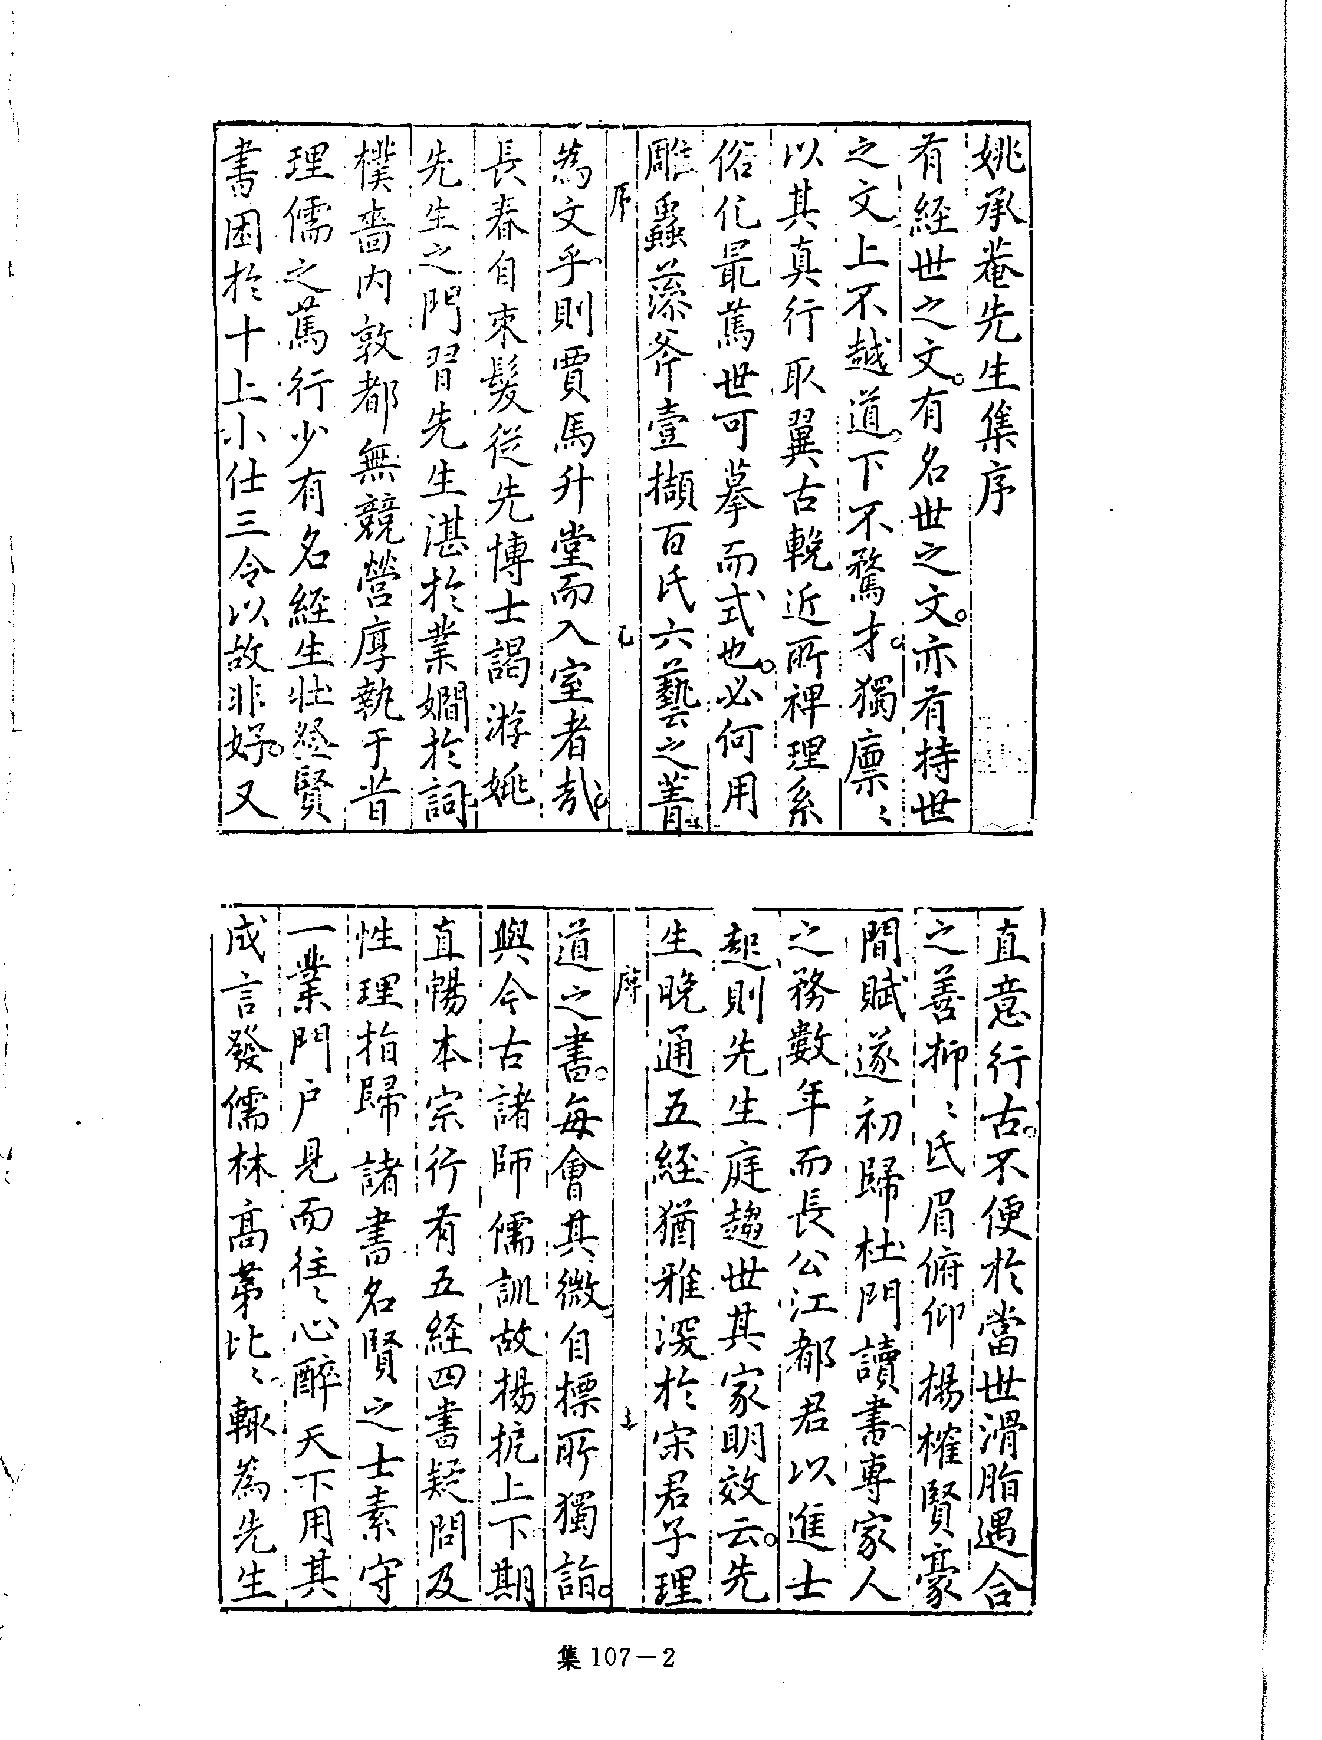 姚承菴先生集序
有經世之文有名世之文亦有持世
之文上不越道下不騖才獨廩〻
以其真行取翼古輓近所裨理系
俗化最薦世可摹而式也必何用
雕蟲藻斧壹擷百氏六藝之菁
序
為文乎則賈馬升堂而入室者哉
長春自束髮從先博士謁游姚
先生之門習先生湛於業嫺於詞
樸嗇內敦都無競營厚執于昔
理儒之篤行少有名經生壯登賢
書困於十上小仕三令以故非好又
直意行古不便於當世滑脂遇合
之善抑〻氏眉俯仰揚榷賢豪
間賦遂初歸杜門讀書專家人
之務數年而長公江都君以進士
起則先生庭趨世其家明效云先
生晚通五經猶雅深於宋君子理
道之書每會其微自標所獨詣
與今古諸師儒訓故揚扢上下期
直暢本宗行有五經四書疑問及
性理指歸諸書名賢之士素守
一業門戶見而往〻心醉天下用其
成言發儒林高第比〻輒為先生
集107－2